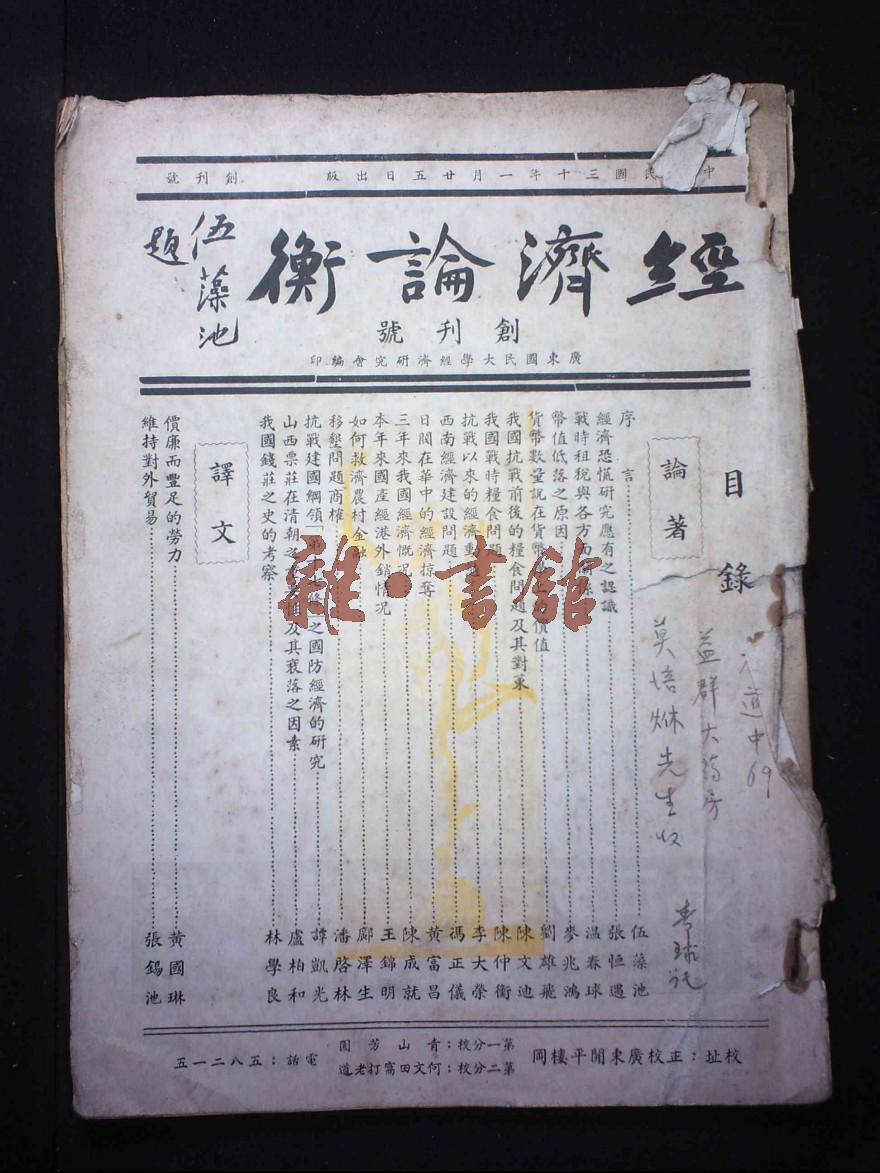 中 民國三十年一月廿五日出版 創刊號
經濟論衡
伍藻池
題
創刊號
廣東國民大學經濟研究會編印
目錄
論著
序言 伍藻池
經濟恐慌研究應有之認識 張恒遇
戰時租稅與各方面關係 温春球
幣值低落之原因 麥兆鴻
貨幣數量說在貨幣 價值 劉雄飛
我國抗戰前後的糧食問題及其對策 陳文迪
我國戰時糧食問題 陳仲衡
抗戰以來的經濟動 李大榮
西南經濟建設問題 馮正儀
日閥在華中的經濟掠奪 黃富昌
三年來我國經濟慨況 陳成就
本年來國產經港外銷情况 王錦明
如何救濟農村金融 鄺澤生
移墾問題商榷 潘啓林
抗戰建國綱領「第十七條」之國防經濟的研究 譚凱光
山西票莊在清朝之 及其衰落之因素 盧柏和
我國錢莊之史的考察 林學良
譯文
價廉而豐足的勞力 黃國琳
維持對外貿易 張錫池
道中69
益群大藥房
莫培烌先生收
雜·書館
校址：正校廣東開平樓岡
第一分校：青山芳園
第二分校：何文田窩打老道
電話：五八二一五